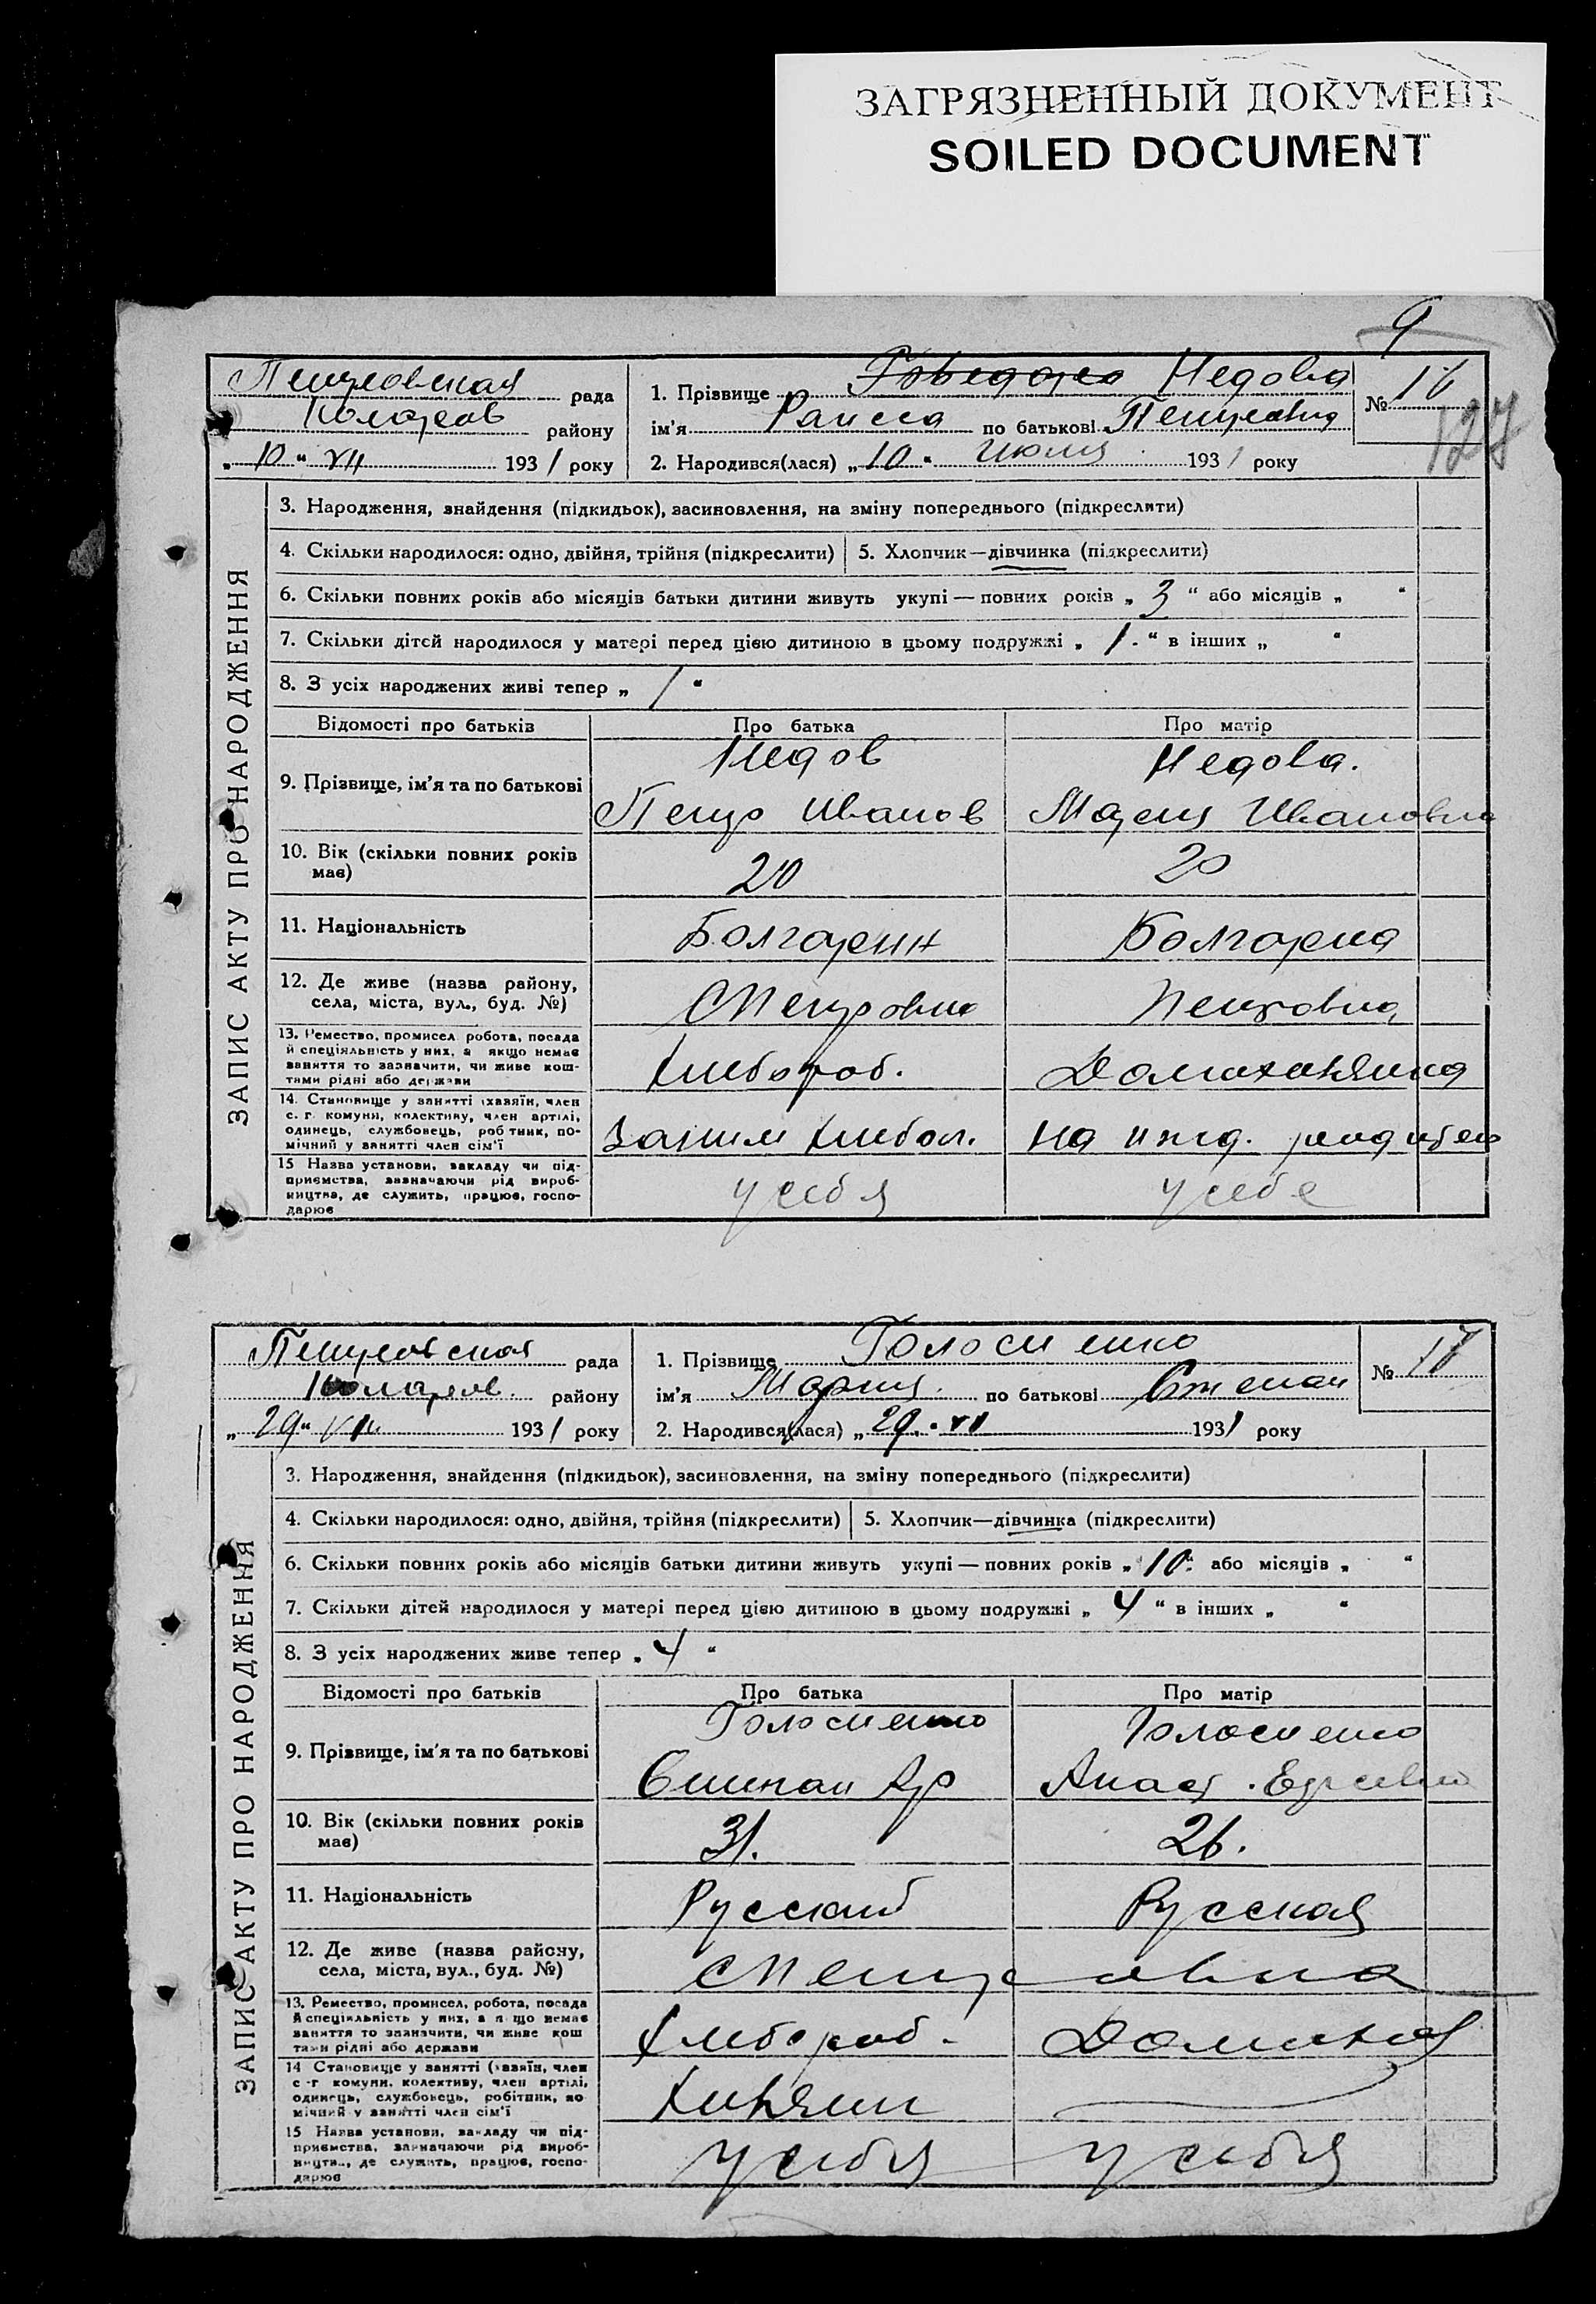 ЗАГРЯЗНЕННЫЙ ДОКУМЕНТ
SOILED DOCUMENT
9
Петровская рада
Коларов району
„ 10 “ VII 1931 року
1. Прізвище Недова
ім'я Раисса по батькові Петровна
2. Народився(лася) „ 10 “ Июля 1931 року
№ 16
127
ЗАПИС АКТУ ПРО НАРОДЖЕННЯ
3. Народження, знайдення (підкидьок), засиновлення, на зміну попереднього (підкреслити)
4. Скільки народилося: одно, двійня, трійня (підкреслити) 5. Хлопчик—дівчинка (підкреслити)
6. Скільки повних років або місяців батьки дитини живуть укупі — повних років „ 3 “ або місяців „ “
7. Скільки дітей народилося у матері перед цією дитиною в цьому подружжі „ 1. “ в інших „ “
8. З усіх народжених живі тепер „ 1 “
Відомості про батьків Про батька Про матір
9. Прізвище, ім'я та по батькові
Недов
Петр Иванов
Недова.
Мария Ивановна
10. Вік (скільки повних років
має)
20 20
11. Національність Болгарин Болгарка
12. Де живе (назва району,
села, міста, вул., буд. №)
СПетровка Петровка
13. Ремество, промисел робота, посада
й спеціяльність у них, а якщо немає
заняття то зазначити, чи живе кош-
тами рідні або держави
Хлебороб. Домохозяйка
14. Становище у занятті (хазяїн, член
с. г. комуни, колективу, член артілі,
одинець, службовець, робітник, по-
мічний у занятті член сім'ї
на ижд.
15 Назва установи, закладу чи під-
приємства, зазначаючи рід вироб-
ництва, де служить, працює, госпо-
дарює
у себя у себе
Петровская рада
Коларов. району
„ 29 “ VII 1931 року
1. Прізвище Голосненко
ім'я Мария. по батькові Степан
2. Народився(лася) „ 29. “ VII 1931 року
№ 17
ЗАПИС АКТУ ПРО НАРОДЖЕННЯ
3. Народження, знайдення (підкидьок), засиновлення, на зміну попереднього (підкреслити)
4. Скільки народилося: одно, двійня, трійня (підкреслити) 5. Хлопчик—дівчинка (підкреслити)
6. Скільки повних років або місяців батьки дитини живуть укупі — повних років „ 10 “ або місяців „ “
7. Скільки дітей народилося у матері перед цією дитиною в цьому подружжі „ 4 “ в інших „ “
8. З усіх народжених живе тепер „ 4 “
Відомості про батьків Про батька Про матір
9. Прізвище, ім'я та по батькові
Голосненко
Степан
Голосненко
Анаст.
10. Вік (скільки повних років
має)
31. 26.
11. Національність Русский Русская
12. Де живе (назва району,
села, міста, вул., буд. №)
СПетровка
13. Ремество, промисел, робота, посада
й спеціяльність у них, а якщо немає
заняття то зазначити, чи живе кош
тами рідні або держави
Хлебороб. Домохоз
14 Становище у занятті (хазяїн, член
с-г комуни, колективу, член артілі,
одинець, службовець, робітник, по
мічний у занятті член сім'ї
Хозяин
15 Назва установи, закладу чи під-
приємства, зазначаючи рід вироб-
ництва, де служить, працює, госпо-
дарює
у себя у себя